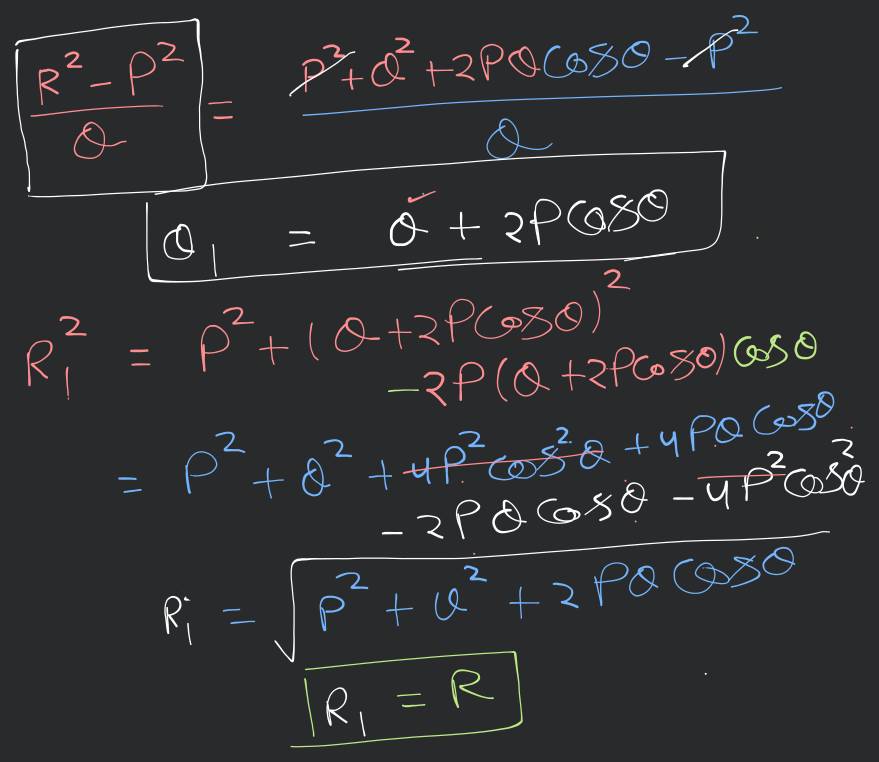 R² - P² / Q = P² + Q² + 2PQ Cosθ - P² / Q
Q₁ = Q + 2P Cosθ
R₁² = P² + (Q + 2P Cosθ)²
- 2P (Q + 2P Cosθ) Cosθ
= P² + Q² + 4P² Cos²θ + 4PQ Cosθ
- 2PQ Cosθ - 4P² Cos²θ
R₁ = √P² + Q² + 2PQ Cosθ
R₁ = R